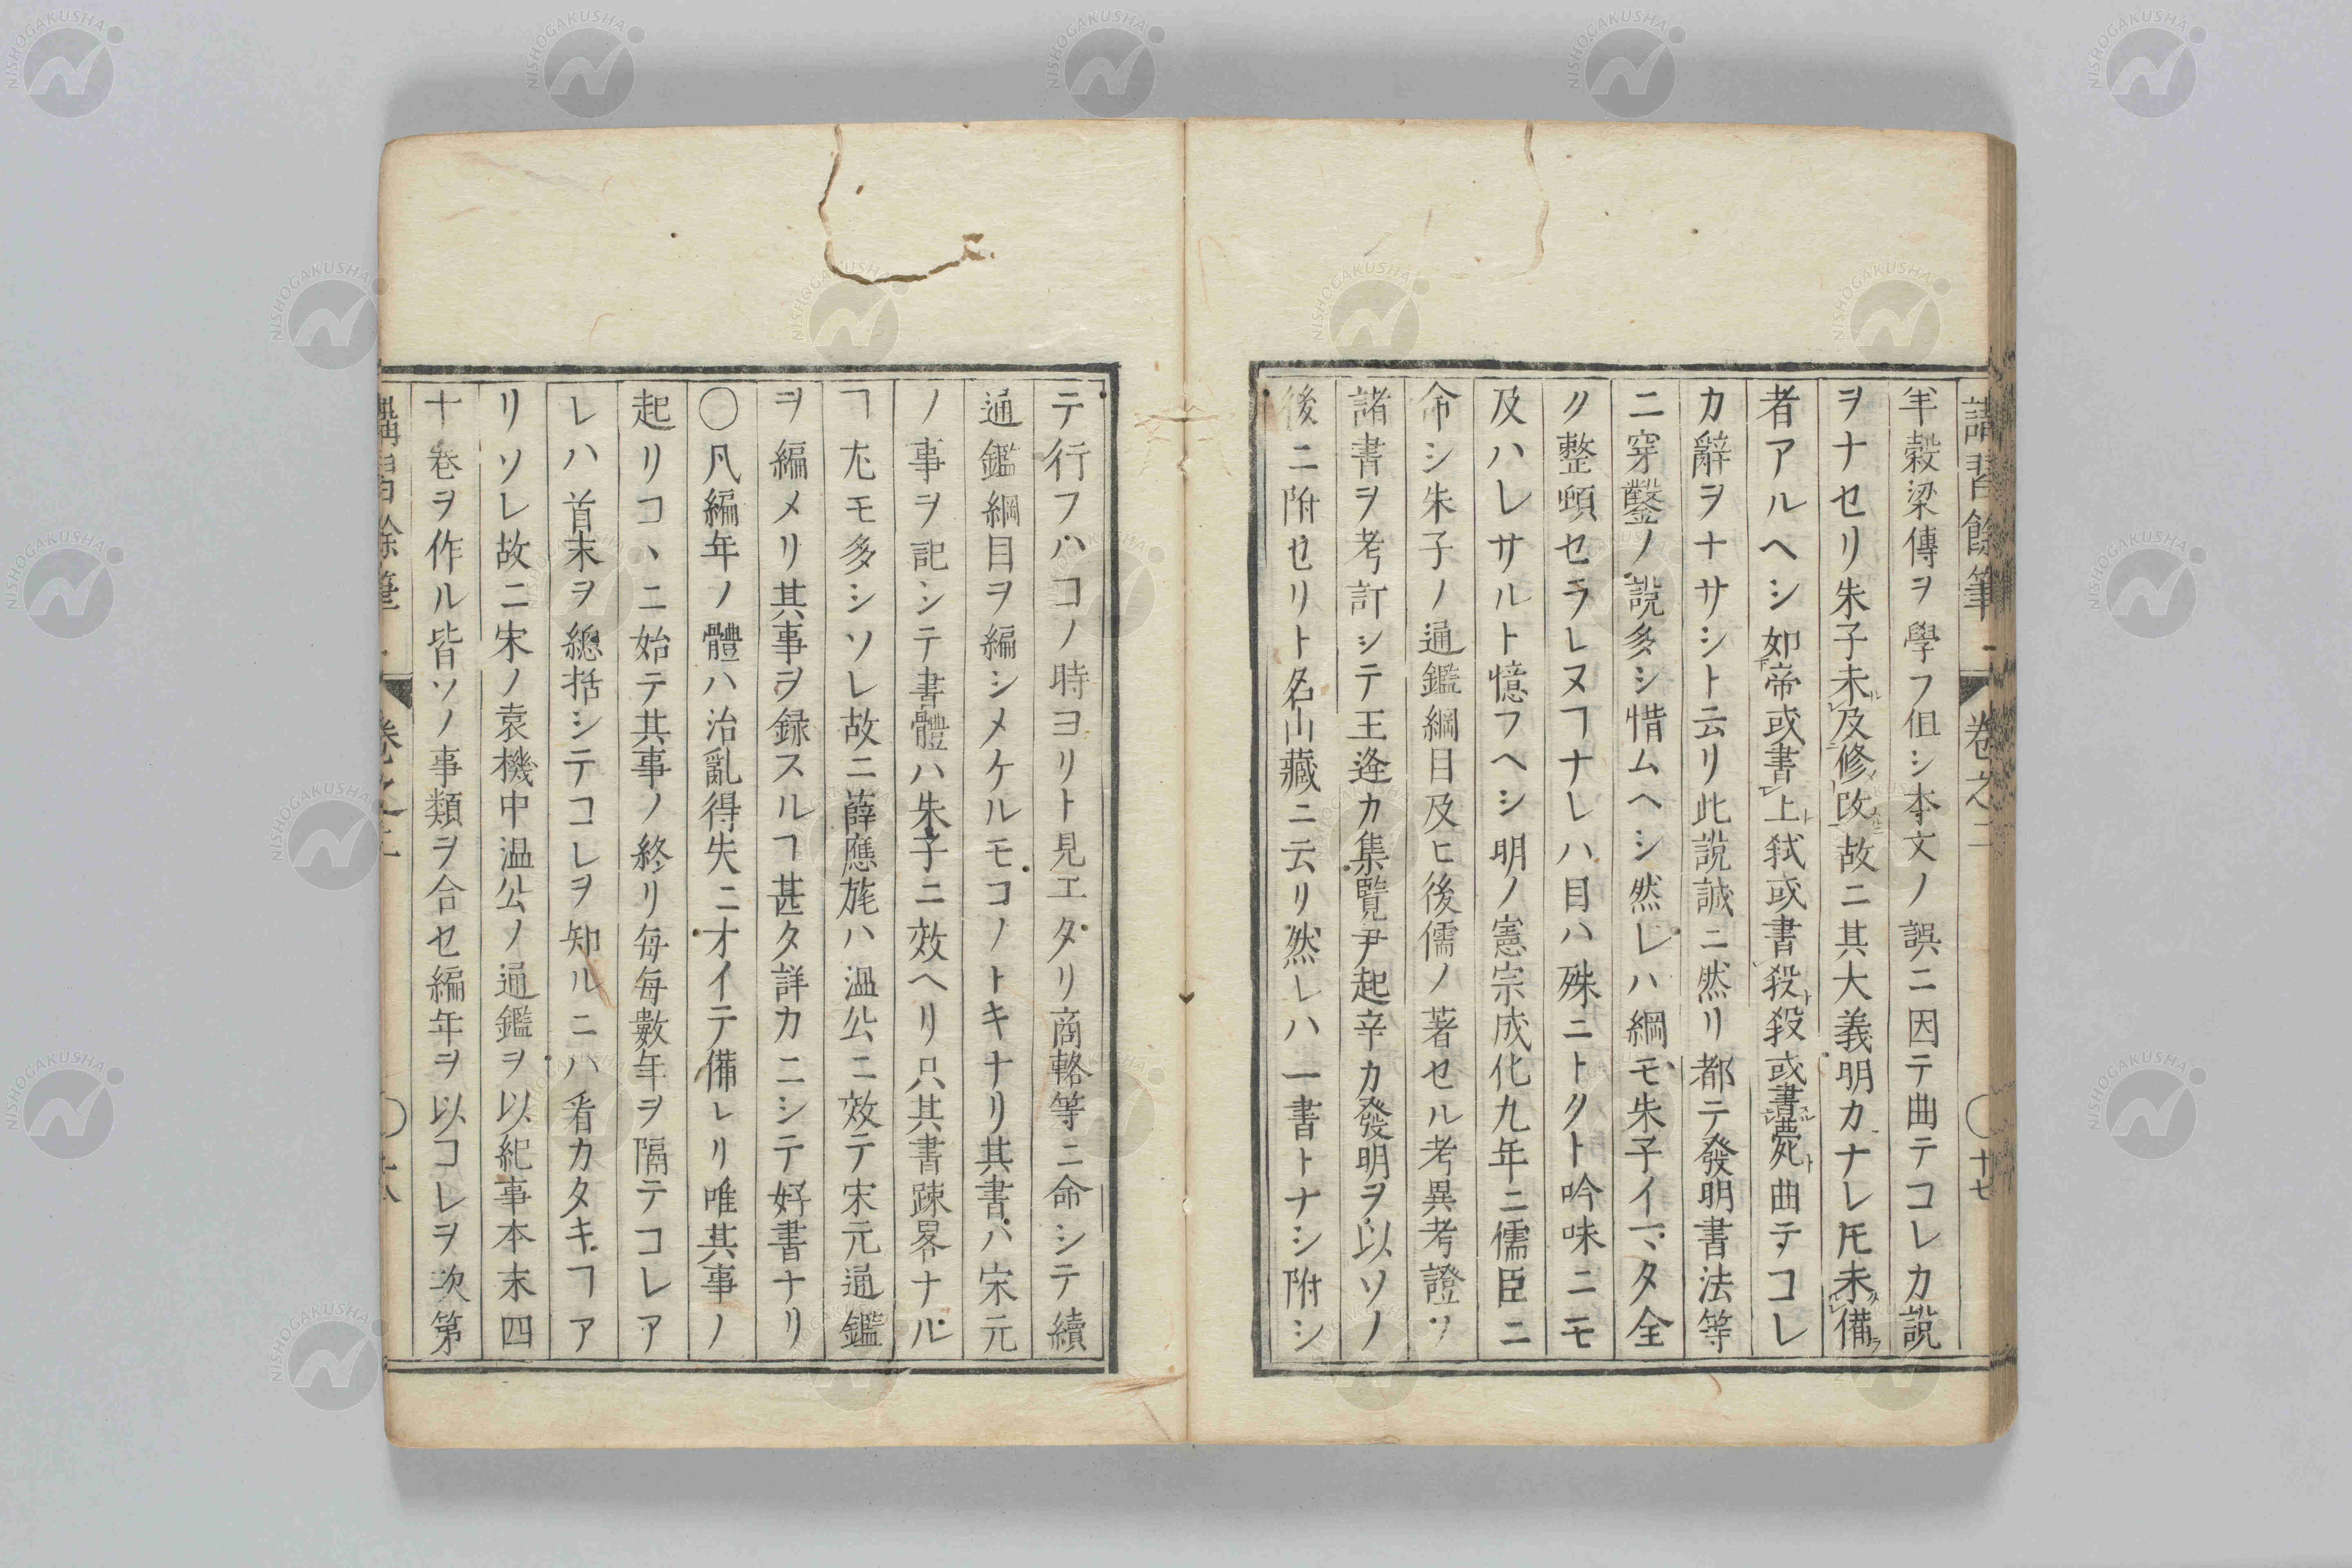 講習餘筆 卷之二 〇十七
羊穀梁傳ヲ學フ但シ本文ノ誤ニ因テ曲テコレカ説
ヲナセリ朱子未及修改故ニ其大義明カナレ𪜈未備
者アルヘシ如帝或書上弑或書殺殺或書薨曲テコレ
カ辭ヲナサシト云リ此説誠ニ然リ都テ發明書法等
ニ穿鑿ノ説多シ惜ムヘシ然レハ綱モ朱子イマタ全
ク整頓セラレヌヿナレハ目ハ殊ニトクト吟味ニモ
及ハレサルト憶フヘシ明ノ憲宗成化九年ニ儒臣ニ
命シ朱子ノ通鑑綱目及ヒ後儒ノ著セル考異考證ソ
諸書ヲ考訂シテ王逢カ集覽尹起辛カ發明ヲ以ソノ
後ニ附セリト名山藏ニ云リ然レハ一書トナシ附シ
テ行フハコノ時ヨリト見エタリ商輅等ニ命シテ續
通鑑綱目ヲ編シメケルモコノトキナリ其書ハ宋元
ノ事ヲ記シテ書體ハ朱子ニ效ヘリ只其書踈畧ナル
ヿ尤モ多シソレ故ニ薛應旂ハ温公ニ效テ宋元通鑑
ヲ編メリ其事ヲ録スルヿ甚タ詳カニシテ好書ナリ
〇凡編年ノ體ハ治亂得失ニオイテ備レリ唯其事ノ
起リコヽニ始テ其事ノ終リ毎毎數年ヲ隔テコレア
レハ首末ヲ總括シテコレヲ知ルニハ看カタキヿア
リソレ故ニ宋ノ袁機中温公ノ通鑑ヲ以紀事本末四
十卷ヲ作ル皆ソノ事類ヲ合セ編年ヲ以コレヲ次第
講習餘筆 卷之二 〇十八
NISHOGAKUSHA